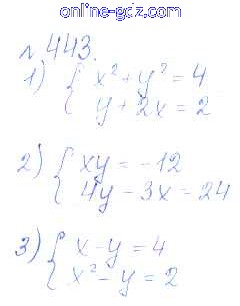 online-gdz.com
№ 443.
1) { x² + y² = 4
y + 2x = 2
2) { xy = -12
4y - 3x = 24
3) { x - y = 4
x² - y = 2